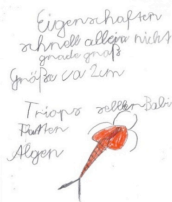 Eigenschaften
schnell allein nicht
gnade groß
Größe ca 2cm
Triops sellen Babi
Futten
Algen